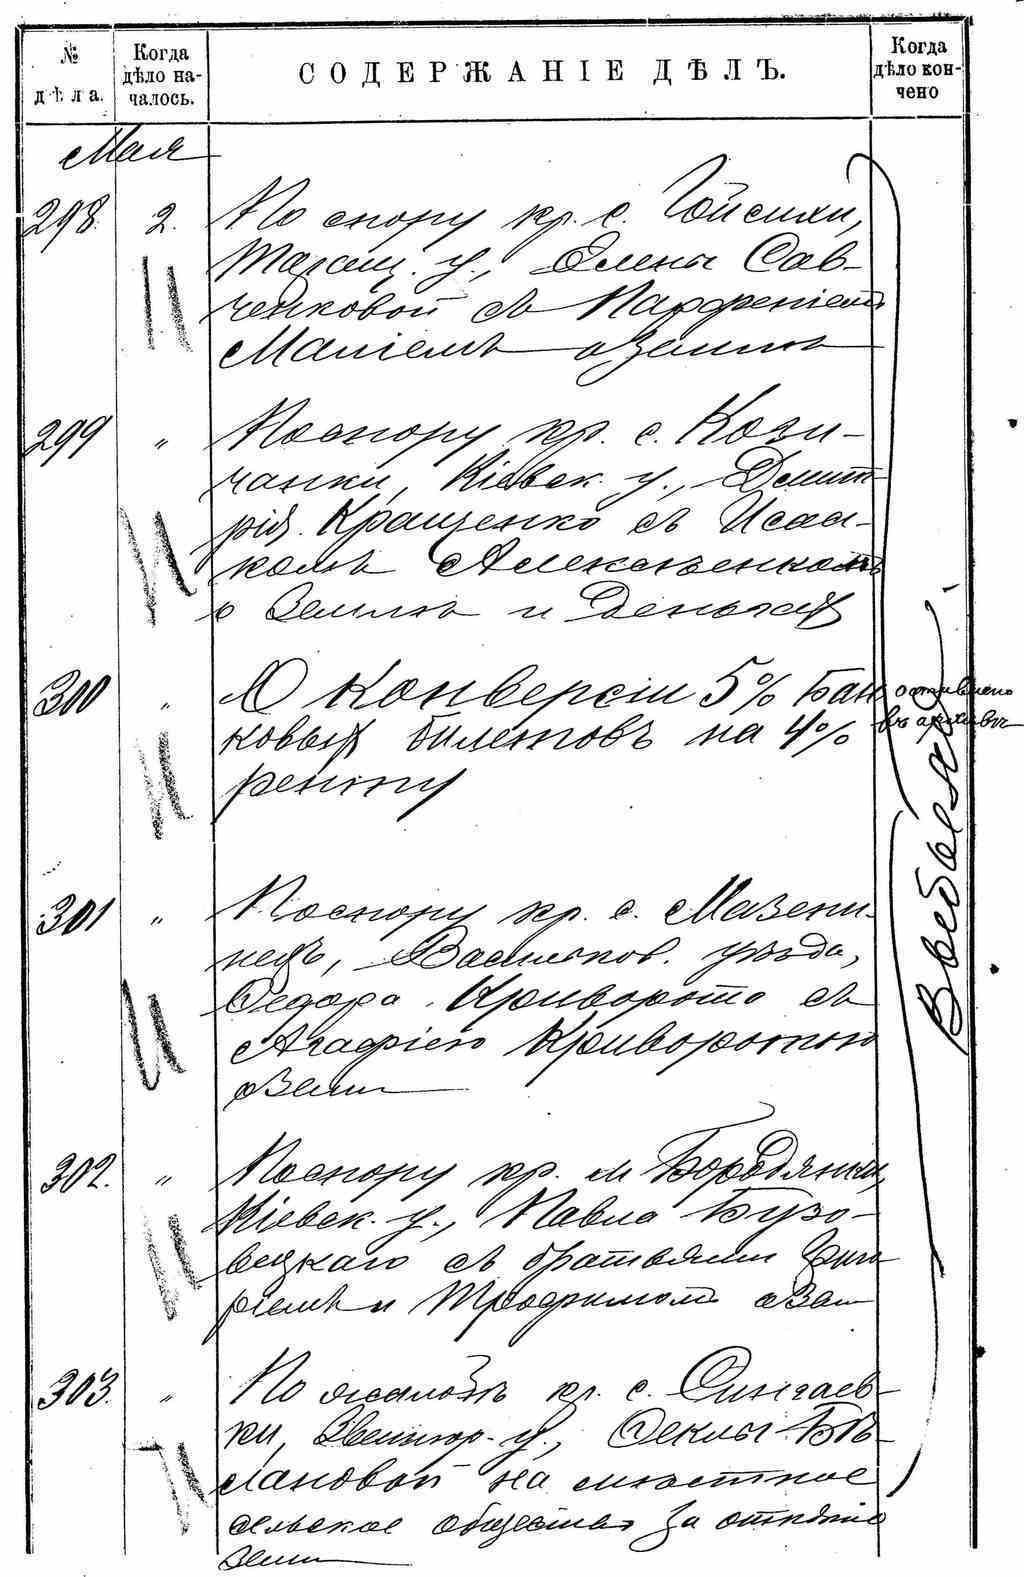 № дѣла.
Когда дѣло на-
чалось.
СОДЕРЖАНІЕ ДѢЛЪ.
Когда
дѣло кон-
чено
Мая
298. 2. По спору кр. с. Гойсихи,
Таращ. у., Елены Сав-
ченковой съ Парфеніемъ
Маліемъ о землѣ
299 " По спору кр. с. Кози-
чанки, Кіевск. у., Дмит-
рія Кращенко съ Исаа-
комъ Алексѣенкомъ
о землѣ и деньгах
300 " О конверсіи 5% Бан
ковых билетовъ на 4%
ренту
оставлено
въ архивѣ
301 " По спору кр. с. Мазепи-
нецъ, Васильков. уѣзда,
Федора Криворото съ
Агафіею Криворотою
о Земл
302. " По спору кр. м Бородянки,
Кіевск. у., Павла Бузо-
вецкаго съ братьями Григо
ріемъ и Трофимомъ о Зем
303. " По жалобѣ кр. с.
ки, Звенигор. у., Феклы Бѣ-
лановой на мѣстное
сельское общество за отнятіе
Земли